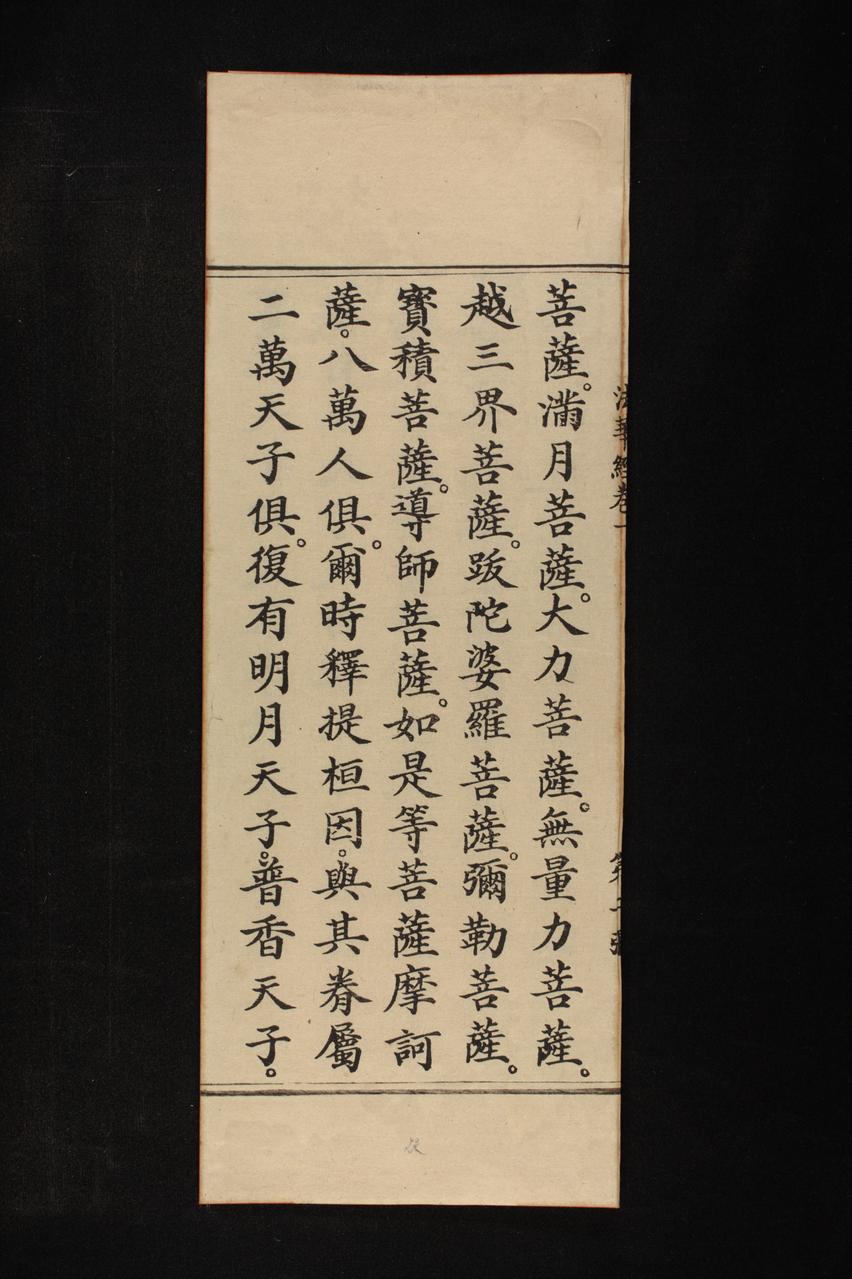 法華經卷一 第二張
菩薩。滿月菩薩。大力菩薩。無量力菩薩。
越三界菩薩。跋陀婆羅菩薩。彌勒菩薩。
寶積菩薩。導師菩薩。如是等菩薩摩訶
薩。八萬人俱。爾時釋提桓因。與其眷屬
二萬天子俱。復有明月天子。普香天子。